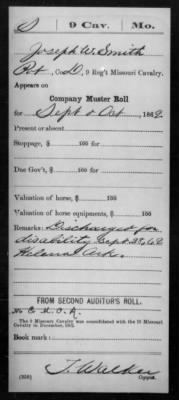 S | 9 Cav. | Mo.
Joseph W. Smith
Pvt, Co. D, 9 Reg't Missouri Cavalry.
Appears on
Company Muster Roll
for Sept & Oct, 1862.
Present or absent
Stoppage, $ 100 for
Due Gov't, $ 100 for
Valuation of horse, $ 100
Valuation of horse equipments, $ 100
Remarks: Discharged for
disability Sept 28, 62
Helena Ark.
FROM SECOND AUDITOR'S ROLL.
The 9 Missouri Cavalry was consolidated with the 10 Missouri
Cavalry in December, 1862.
Book mark:
T. Walker
Copyist.